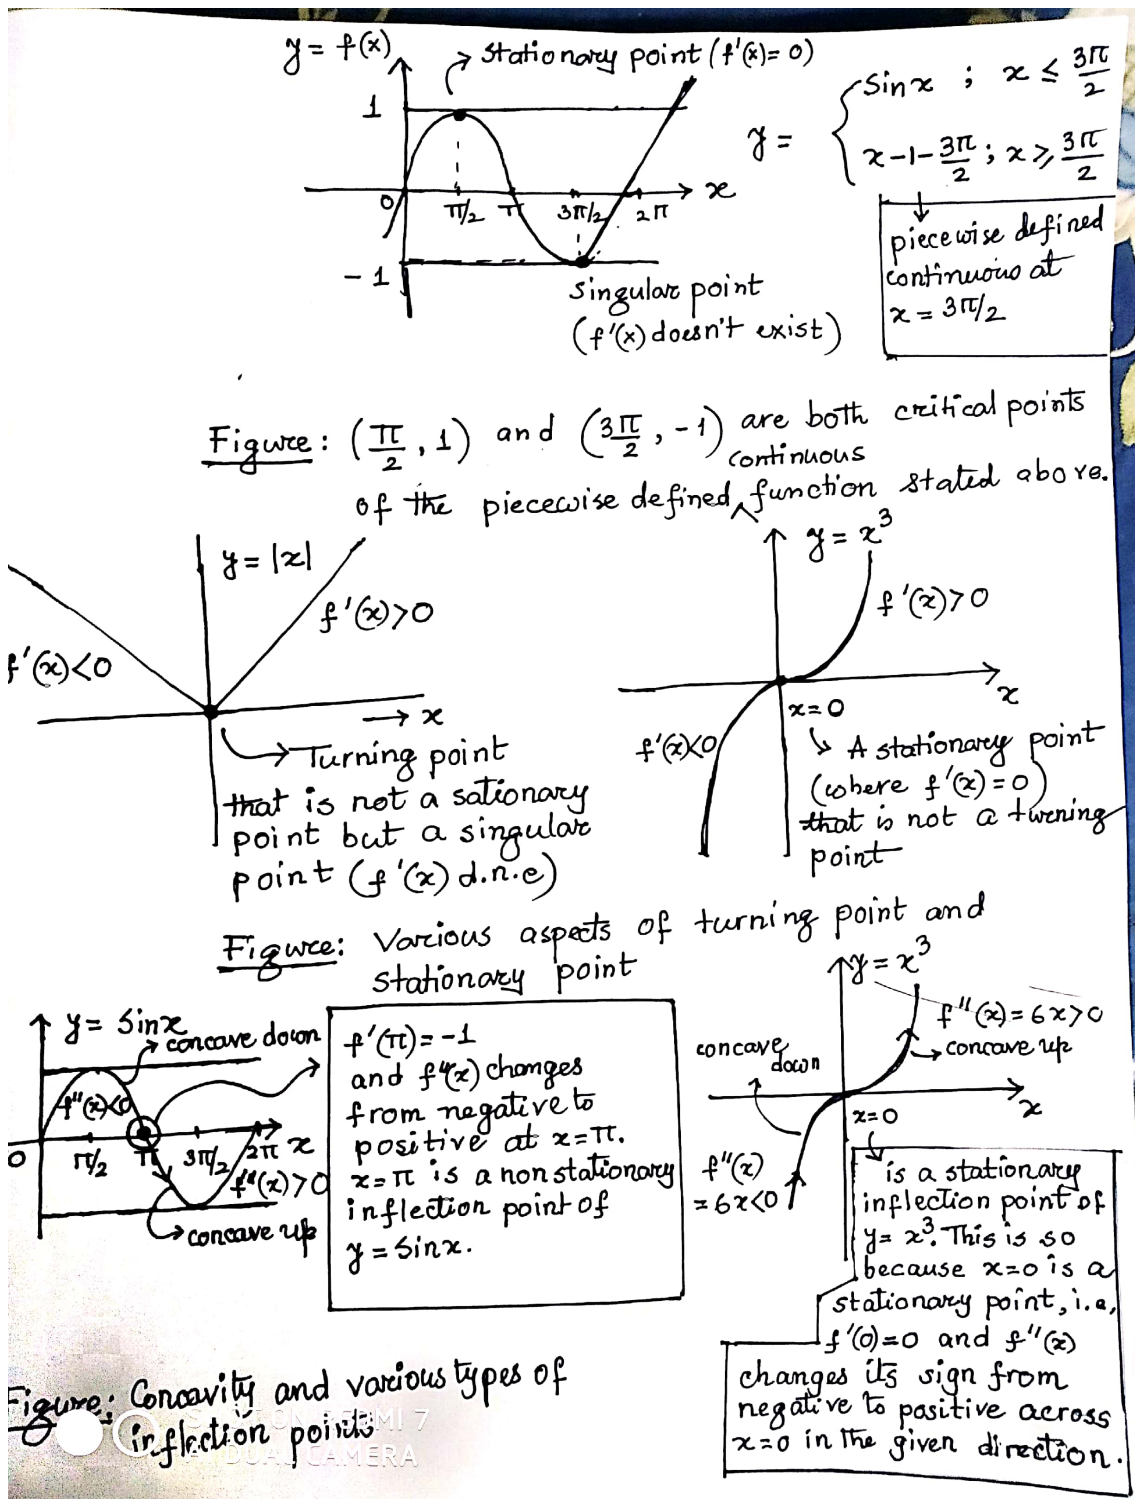 y = f(x)
Stationary point (f'(x)= 0)
1
0
π/2
π
3π/2
2π
x
- 1
Singular point
(f'(x) doesn't exist)
y = { Sinx ; x ≤ 3π/2
x-1-3π/2 ; x ≥ 3π/2
piecewise defined
continuous at
x = 3π/2
Figure: (π/2, 1) and (3π/2, -1) are both critical points
continuous
of the piecewise defined ^ function stated above.
y = |x|
f'(x)>0
f'(x)<0
→ x
Turning point
that is not a sationary
point but a singular
point (f'(x) d.n.e)
y = x³
f'(x)>0
x
x=0
f'(x)<0
A stationary point
(where f'(x)=0)
that is not a turning
point
Figure: Various aspects of turning point and
stationary point
y = Sinx
concave down
f''(x)<0
0
π/2
π
3π/2
2π
x
f''(x)>0
concave up
f'(π) = -1
and f''(x) changes
from negative to
positive at x=π.
x=π is a nonstationary
inflection point of
y = Sinx.
y = x³
f''(x) = 6x>0
concave up
concave
down
x=0
x
f''(x)
= 6x<0
is a stationary
inflection point of
y= x³. This is so
because x=0 is a
stationary point, i.e,
f'(0)=0 and f''(x)
changes its sign from
negative to positive across
x=0 in the given direction.
Figure: Concavity and various types of
inflection points
REDMI 7
DUAL CAMERA